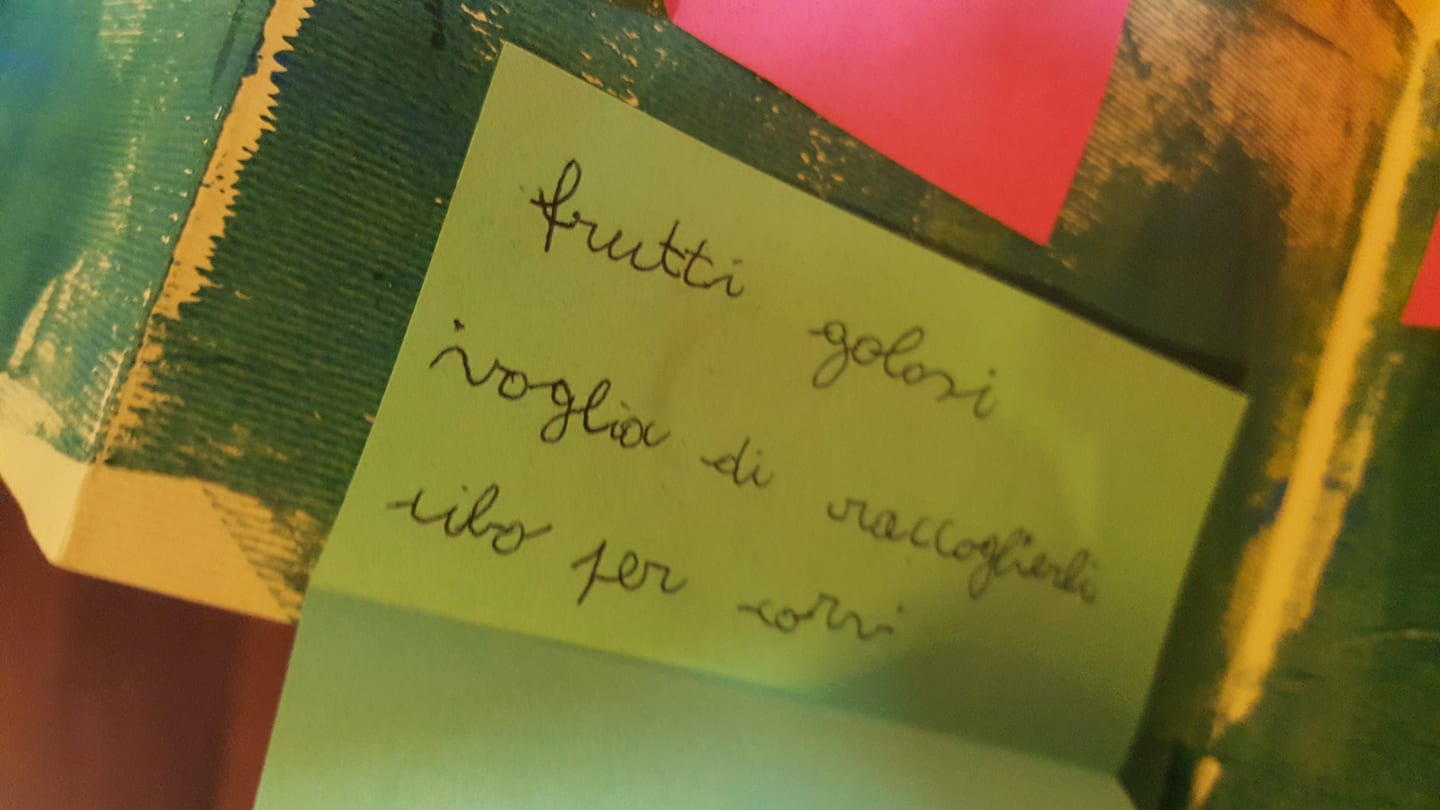 frutti golosi
voglia di raccoglierli
cibo per corvi